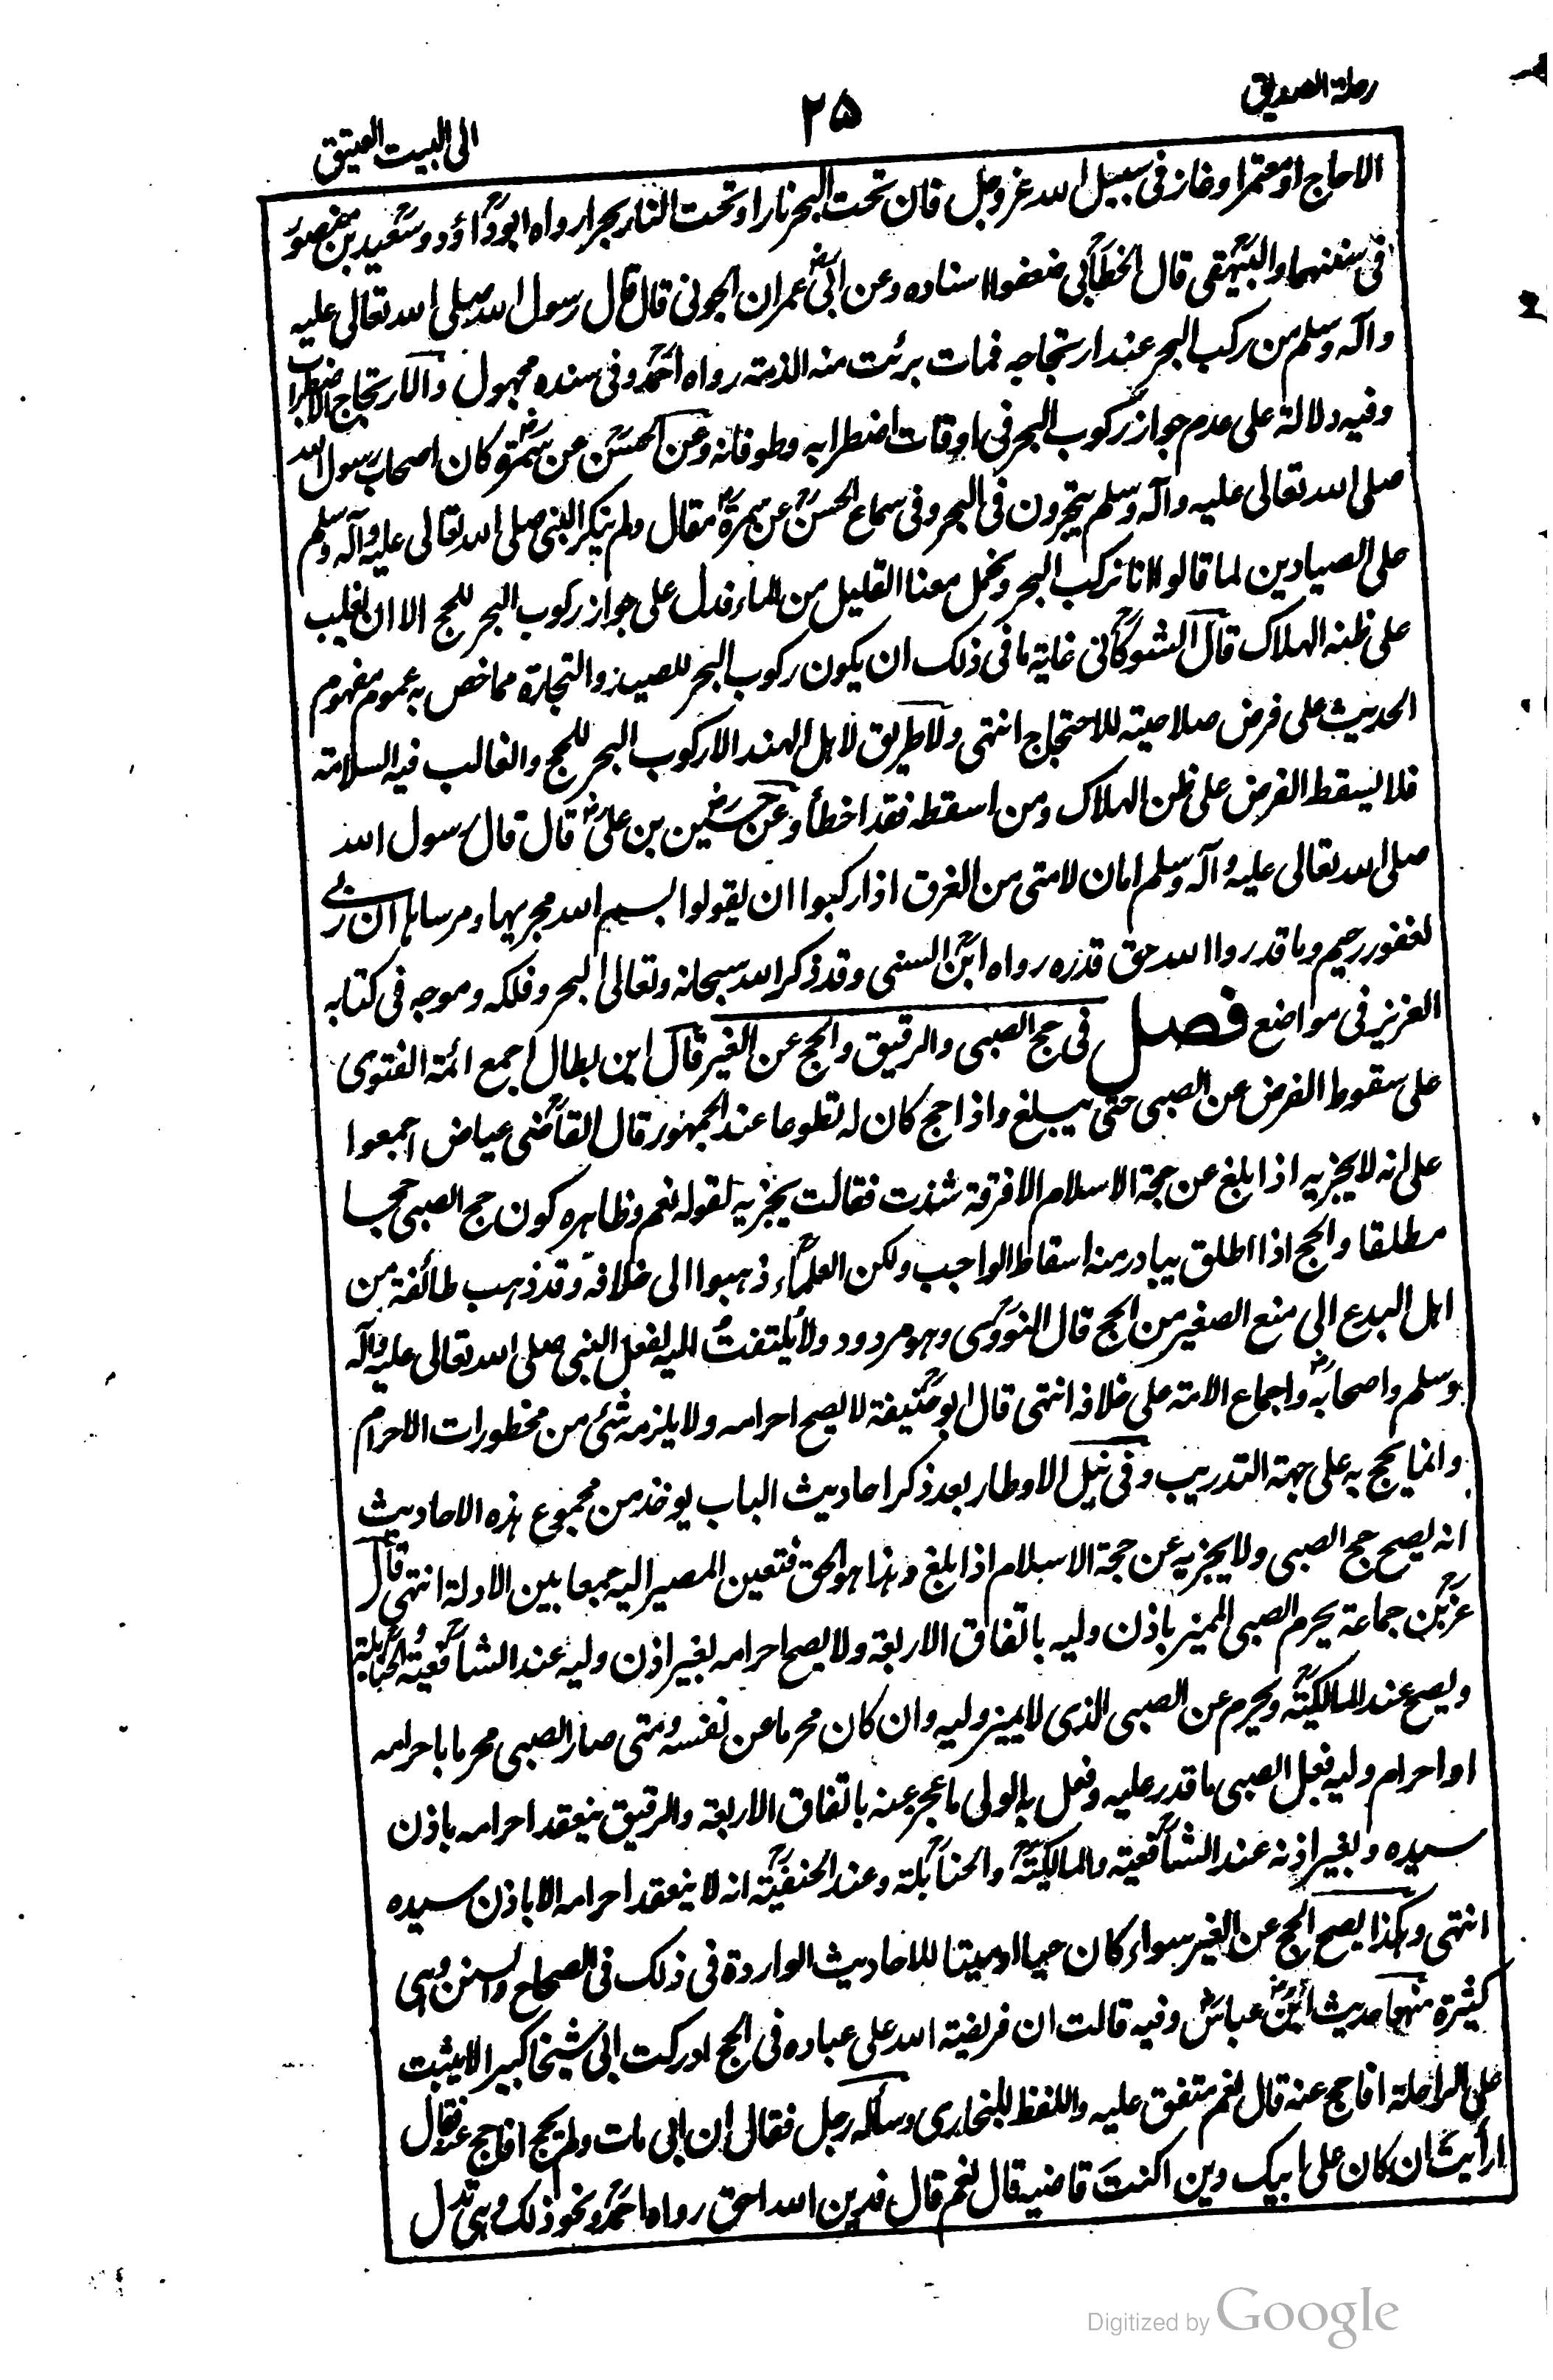 رحلة الصديق
۲۵
الى البيت العتيق
الا حاج او معتمر او غاز فى سبيل الله عز وجل فان تحت البحر نارا وتحت النار بحرا رواه ابوداؤد وسعيد بن منصور
فى سننهما والبيهقى قال الخطابى ضعفوا اسناده وعن ابى عمران الجونى قال قال رسول الله صلى الله تعالى عليه
وآله وسلم من ركب البحر عند ارتجاجه فمات برئت منه الذمة رواه احمد وفى سنده مجهول والارتجاج الاضطراب
وفيه دلالة على عدم جواز ركوب البحر فى اوقات اضطرابه وطوفانه وعن الحسن عن سمرة كان اصحاب رسول الله
صلى الله تعالى عليه وآله وسلم يتجرون فى البحر وفى سماع الحسن عن سمرة مقال ولم ينكر النبى صلى الله تعالى عليه وآله وسلم
على الصيادين لما قالوا انا نركب البحر ونحمل معنا القليل من الماء فدل على جواز ركوب البحر للحج الا ان يغلب
على ظنه الهلاك قال الشوكانى غاية ما فى ذلك ان يكون ركوب البحر للصيد والتجارة مما خص به عموم مفهوم
الحديث على فرض صلاحيته للاحتجاج انتهى ولا طريق لاهل الهند الا ركوب البحر للحج والغالب فيه السلامة
فلا يسقط الفرض على ظن الهلاك ومن اسقطه فقد اخطأ وعن حسين بن على قال قال رسول الله
صلى الله تعالى عليه وآله وسلم امان لامتى من الغرق اذا ركبوا ان يقولوا بسم الله مجريها ومرساها ان ربى
لغفور رحيم وما قدروا الله حق قدره رواه ابن السنى وقد ذكر الله سبحانه وتعالى البحر وفلكه وموجه فى كتابه
العزيز فى مواضع فصل فى حج الصبى والرقيق والحج عن الغير قال ابن بطال اجمع ائمة الفتوى
على سقوط الفرض عن الصبى حتى يبلغ واذا حج كان له تطوعا عند الجمهور قال القاضى عياض اجمعوا
على انه لا يجزيه اذا بلغ عن حجة الاسلام الا فرقة شذت فقالت يجزيه لقوله نعم وظاهره كون حج الصبى حجا
مطلقا والحج اذا اطلق يبادر منه اسقاط الواجب ولكن العلماء ذهبوا الى خلافه وقد ذهب طائفة من
اهل البدع الى منع الصغير من الحج قال النووى وهو مردود ولا يلتفت اليه لفعل النبى صلى الله تعالى عليه وآله
وسلم واصحابه واجماع الامة على خلافه انتهى قال ابو حنيفة لا يصح احرامه ولا يلزمه شئ من محظورات الاحرام
وانما يحج به على جهة التدريب وفى نيل الاوطار بعد ذكر احاديث الباب يوخذ من مجموع هذه الاحاديث
انه يصح حج الصبى ولا يجزيه عن حجة الاسلام اذا بلغ وهذا هو الحق فتعين المصير اليه جمعا بين الادلة انتهى قال
عز بن جماعة يحرم الصبى المميز باذن وليه باتفاق الاربعة ولا يصح احرامه بغير اذن وليه عند الشافعية والحنابلة
ويصح عند المالكية ويحرم عن الصبى الذى لا يميز وليه وان كان محرما عن نفسه ومتى صار الصبى محرما باحرامه
او احرام وليه فعل الصبى ما قدر عليه وفعل به الولى ما عجز عنه باتفاق الاربعة والرقيق ينعقد احرامه باذن
سيده وبغير اذنه عند الشافعية والمالكية والحنابلة وعند الحنفية انه لا ينعقد احرامه الا باذن سيده
انتهى وهكذا يصح الحج عن الغير سواء كان حيا او ميتا للاحاديث الواردة فى ذلك فى الصحاح والسنن وهى
كثيرة منها حديث ابن عباس وفيه قالت ان فريضة الله على عباده فى الحج ادركت ابى شيخا كبيرا لا يثبت
على الراحلة افاحج عنه قال نعم متفق عليه واللفظ للبخارى وسأله رجل فقال ان ابى مات ولم يحج افاحج عنه فقال
ارأيت ان كان على ابيك دين اكنت قاضيه قال نعم قال فدين الله احق رواه احمد ونحو ذلك وهى تدل
Digitized by Google